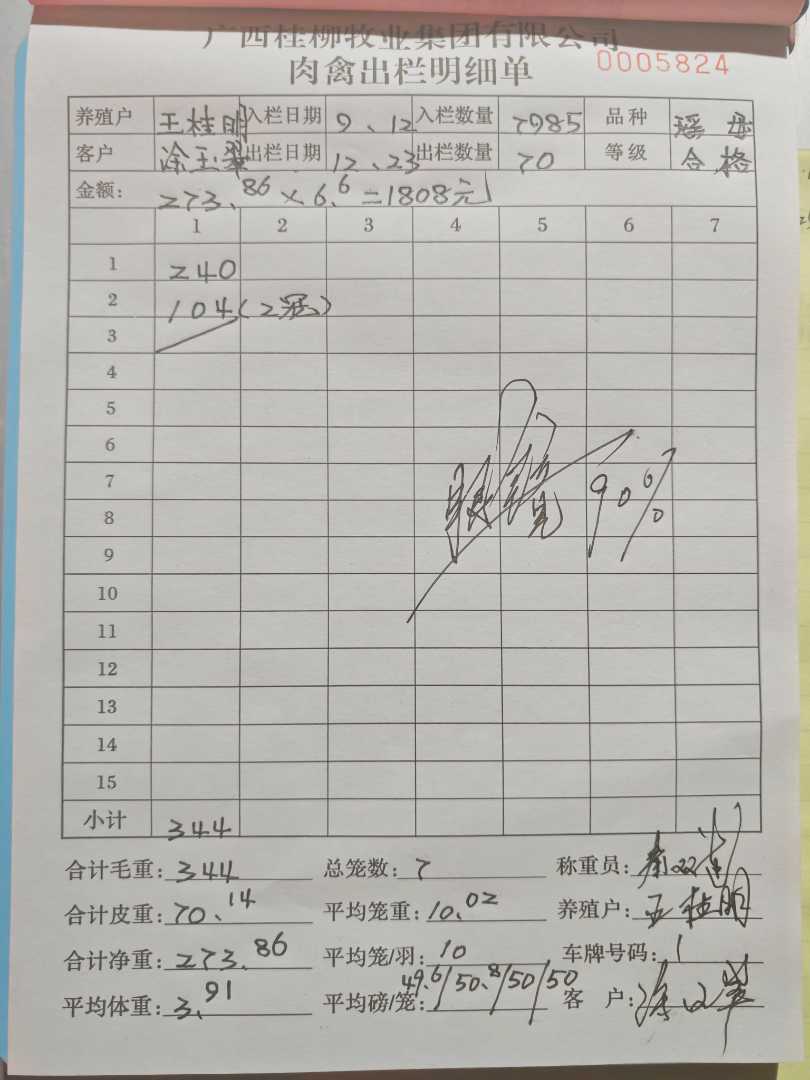 广西桂柳牧业集团有限公司
肉禽出栏明细单 0005824
养殖户 王桂明 入栏日期 9、12 入栏数量 7985 品种 瑶母
客户 涂玉翠 出栏日期 12、23 出栏数量 70 等级 合格
金额: 273.86×6.6=1808元
1 2 3 4 5 6 7
1 240
2 104(2冠)
3
4
5
6
7 90%
8
9
10
11
12
13
14
15
小计 344
合计毛重: 344 总笼数: 7 称重员:
合计皮重: 70.14 平均笼重: 10.02 养殖户: 王桂明
合计净重: 273.86 平均笼/羽: 10 车牌号码: 1
平均体重: 3.91 平均磅/笼: 49.6/50.8/50/50 客 户: